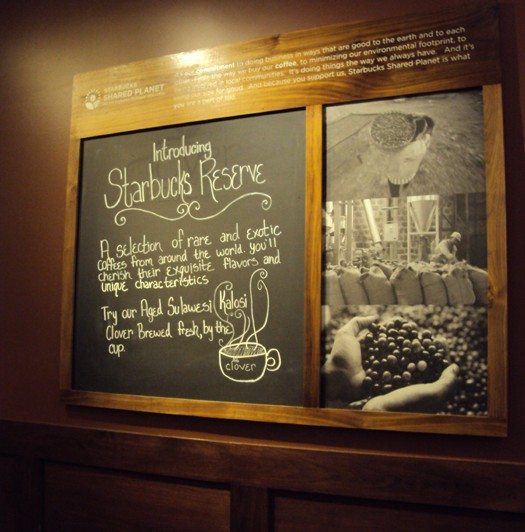 STARBUCKS
SHARED PLANET
It's our commitment to doing business in ways that are good to the earth and to each
the way we buy our coffee, to minimizing our environmental footprint, to
in local communities. It's doing things the way we always have. And it's
And because you support us, Starbucks Shared Planet is what
you are a part of too.
Introducing
Starbucks Reserve
A selection of rare and exotic
coffees from around the world. You'll
cherish their exquisite flavors and
unique characteristics
Try our Aged Sulawesi Kalosi
Clover Brewed fresh, by the
cup.
clover